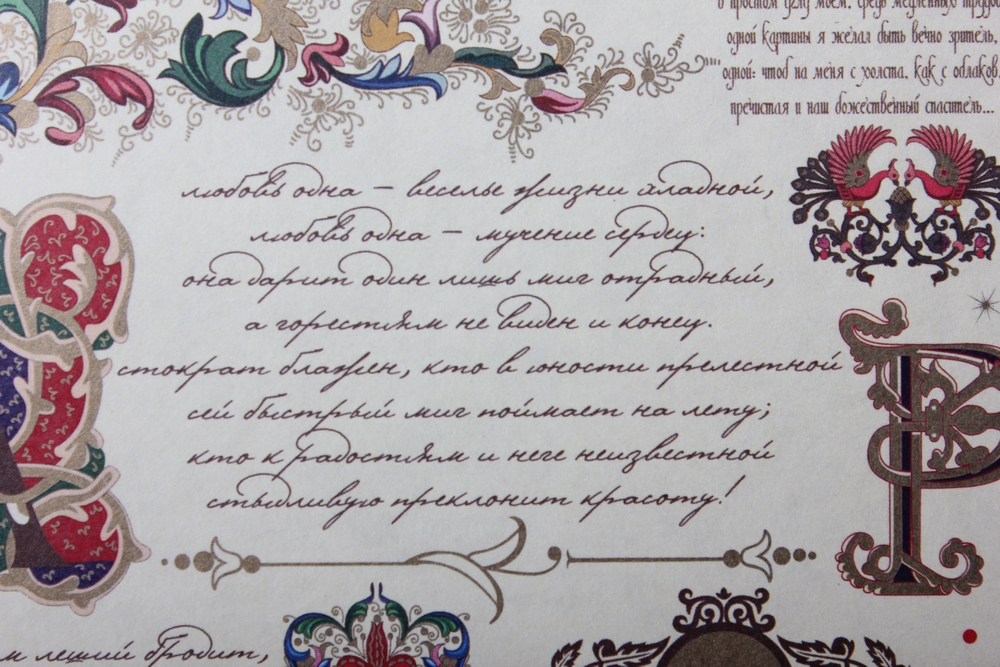 в простом углу моем, средь медленных трудов,
одной картины я желал быть вечно зритель,
одной: чтоб на меня с холста, как с облаков,
пречистая и наш божественный спаситель...
любовь одна – веселье жизни хладной,
любовь одна – мучение сердец:
она дарит один лишь миг отрадный,
а горестям не виден и конец.
стократ блажен, кто в юности прелестной
сей быстрый миг поймает на лету;
кто к радостям и неге неизвестной
стыдливую преклонит красоту!
леший бродит,